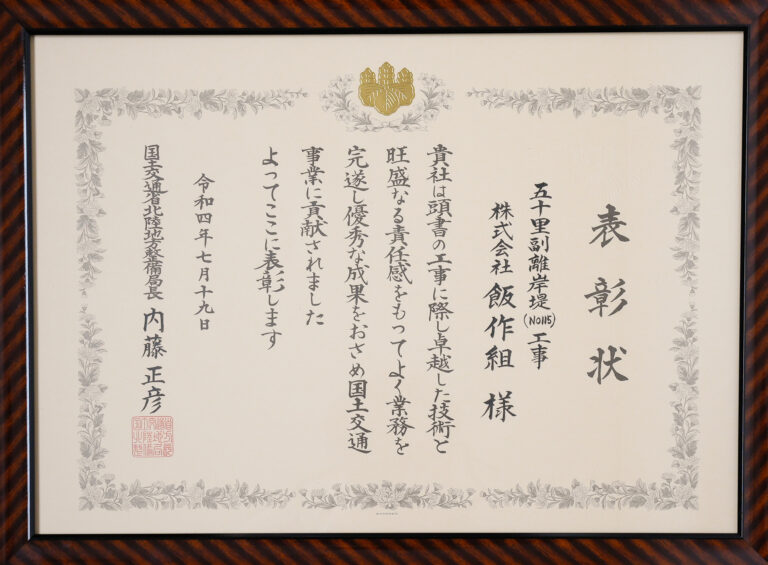 表彰状
五十里副離岸堤(NO115)工事
株式会社 飯作組 様
貴社は頭書の工事に際し卓越した技術と
旺盛なる責任感をもつてよく業務を
完遂し優秀な成果をおさめ国土交通
事業に貢献されました
よってここに表彰します
令和四年七月十九日
国土交通省北陸地方整備局長 内藤正彦